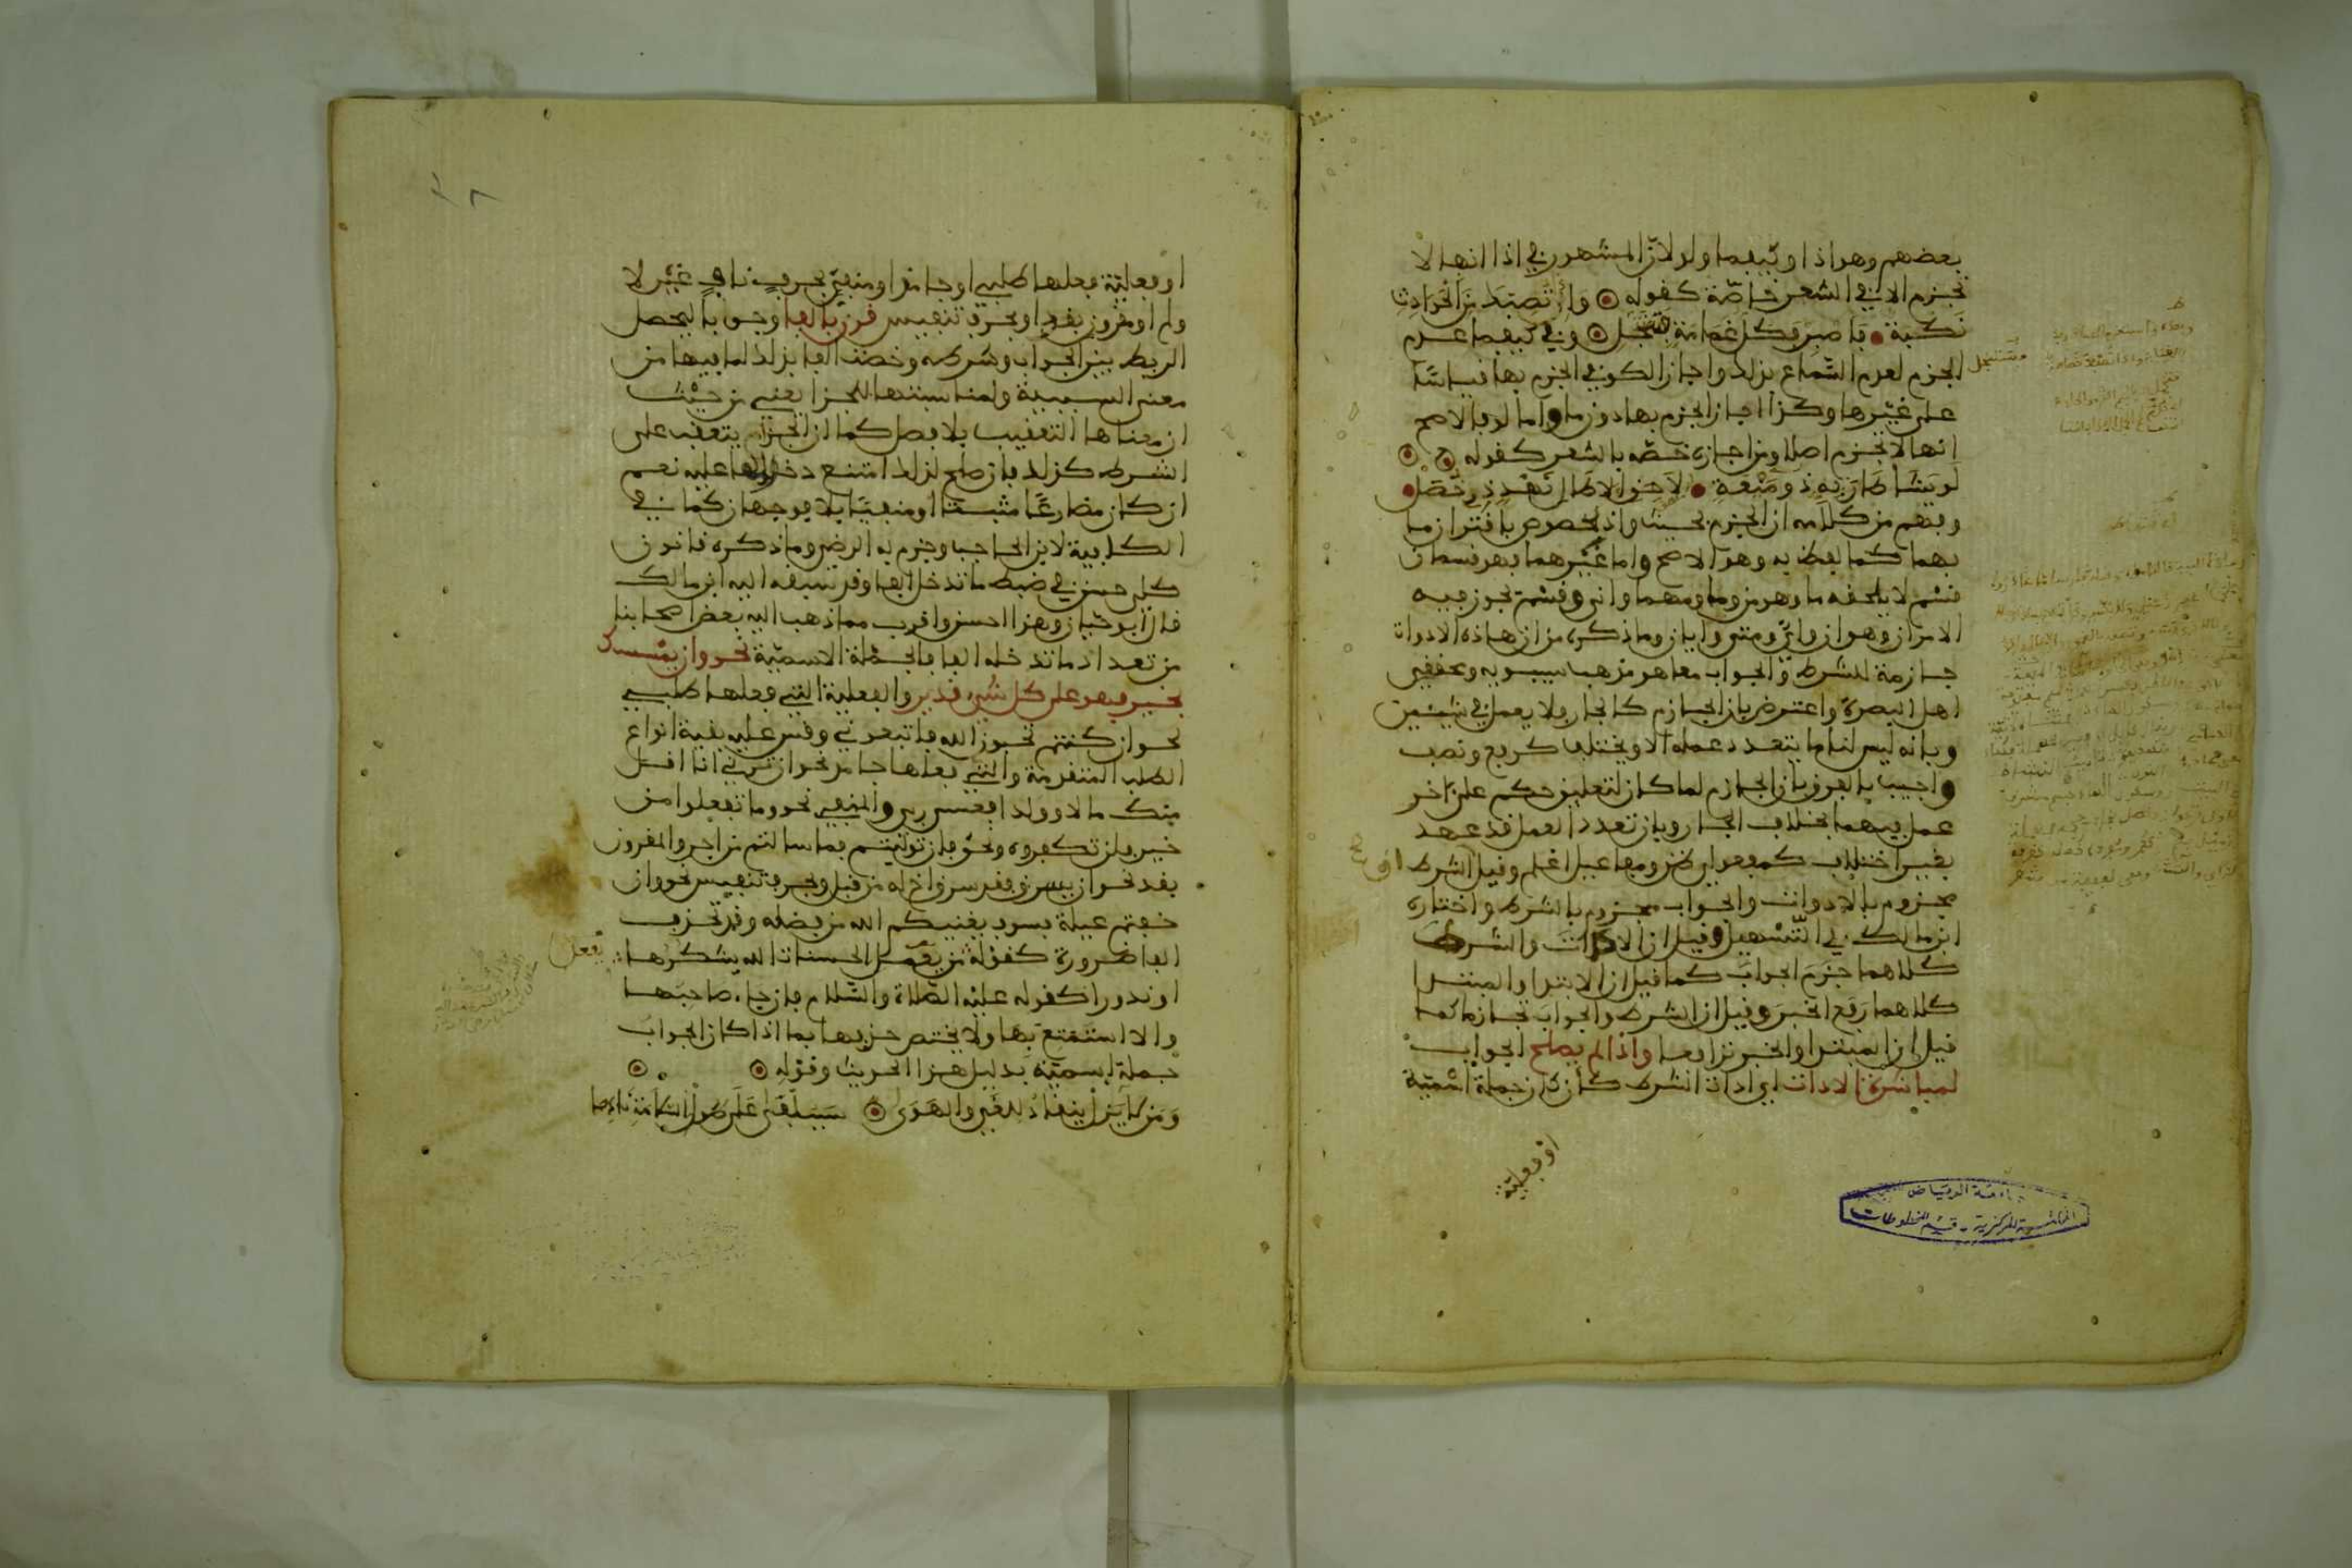 بعضهم وهو اذا وكيفما ولو لان المشهور في اذا انها لا
تجزم الا في الشعر خاصة كقوله واذا تصبك من الحوادث
نكبة فاصبر فكل غمامة ستنجلي وفي كيفما عدم
الجزم لعدم السماع بذلك واجاز الكوفي الجزم بها قياسا
على غيرها وكذا اجاز الجزم بها دون ما واما لو فالاصح
انها لا تجزم اصلا ومن اجازه خصه بالشعر كقوله
لو يشا طار به ذو ميعة لاحق الاطال نهد ذو خصل
وفهم من كلامه ان الجزم بحيث واذ مخصوص باقتران ما
بهما كما لفظ به وهو الاصح واما غيرهما فهو قسمان
قسم لا يلحقه ما وهو من وما ومهما وانى وقسم يجوز فيه
الامران وهو ان واي ومتى وايان وما ذكره من ان هاذه الادوات
جازمة للشرط والجواب معا هو مذهب سيبويه ومحققي
اهل البصرة واعترض بان الجازم كالجار ولا يعمل في شيئين
وبانه ليس لنا ما يتعدد عمله الا ويختلف كرفع ونصب
واجيب بالفرق بان الجازم لما كان لتعليق حكم على اخر
عمل فيهما بخلاف الجار وبان تعدد العمل قد عهد
بغير اختلاف كمفعولي ظن ومفاعيل اعلم وقيل الشرط
مجزوم بالادوات والجواب مجزوم بالشرط واختاره
ابن مالك في التسهيل وقيل ان الادوات والشرط
كلاهما جزم الجواب كما قيل ان الابتدا والمبتدا
كلاهما رفع الخبر وقيل ان الشرط والجواب تجازما كما
قيل ان المبتدا والخبر ترافعا واذا لم يصلح الجواب
لمباشرة الادات اي ادات الشرط كان كان جملة اسمية
او فعلية
او فعلية فعلها طلبي او جامد او منفي بحرف ناف غير لا
ولم او مقرون بقد او بحرف تنفيس قرن بالفا وجوبا ليحصل
الربط بين الجواب وشرطه وخصت الفا بذلك لما فيها من
معنى السببية ولمناسبتها للجزا يعني من حيث
ان معناها التعقيب بلا فصل كما ان الجزا يتعقب على
الشرط كذلك فان صلح لذلك امتنع دخول الفا عليه نعم
ان كان مضارعا مثبتا او منفيا بلا فوجهان كما في
الكافية لابن الحاجب وجزم به الرضي وما ذكره قانون
كلي حسن في ضبط ما تدخل الفا وقد سبقه اليه ابن مالك
قال ابو حيان وهذا احسن واقرب مما ذهب اليه بعض اصحابنا
من تعداد ما تدخله الفا فالجملة الاسمية نحو وان يمسسك
بخير فهو على كل شيء قدير والفعلية التي فعلها طلبي
نحو ان كنتم تحبون الله فاتبعوني وقس عليه بقية انواع
الطلب المتقدمة والتي فعلها جامد نحو ان ترني انا اقل
منك مالا وولدا فعسى ربي والمنفي نحو وما تفعلوا من
خير فلن تكفروه ونحو فان توليتم فما سالتم من اجر والمقرون
بقد نحو ان يسرق فقد سرق اخ له من قبل وبحرف تنفيس نحو وان
خفتم عيلة فسوف يغنيكم الله من فضله وقد تحذف
الفا ضرورة كقوله من يفعل الحسنات الله يشكرها
يفعل
او ندورا كقوله عليه الصلاة والسلام فان جاء صاحبها
والا استمتع بها ولا يختص حذفها بما اذا كان الجواب
جملة اسمية بدليل هذا الحديث وقوله
ومن لا يزل ينقاد للغي والهوى سيلفى على طول السلامة نادما
جامعة الرياض
المكتبة المركزية - قسم المخطوطات